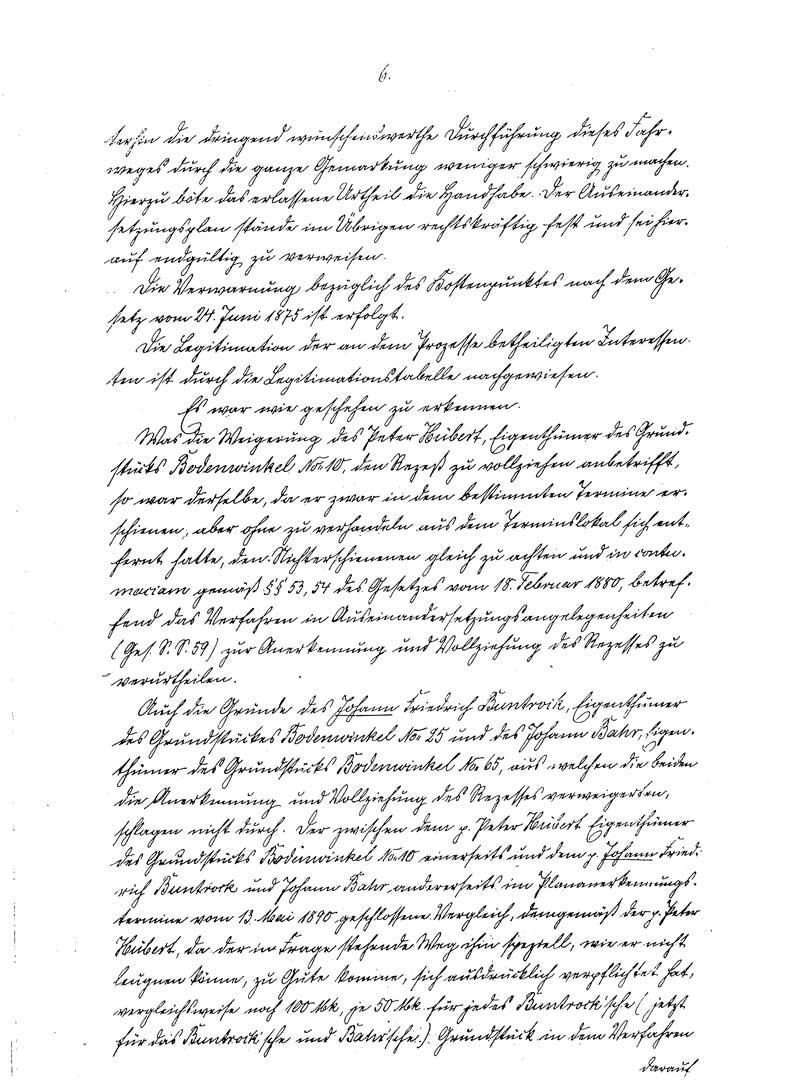 6.
terhin die dringend wünschenswerthe Durchführung dieses Fahr-
weges durch die ganze Gemarkung weniger schwierig zu machen.
Hierzu böte das erlassene Urtheil die Handhabe. Der Auseinander-
setzungsplan stände im Übrigen rechtskräftig fest und sei hier-
auf endgültig zu verweisen.
Die Verwarnung bezüglich des Kostenpunktes nach dem Ge-
setz vom 24. Juni 1875 ist erfolgt.
Die Legitimation der an dem Prozesse betheiligten Interessen-
ten ist durch die Legitimationstabelle nachgewiesen.
Es war wie geschehen zu erkennen.
Was die Weigerung des Peter Hübert, Eigenthümer des Grund-
stücks Bodenwinkel No. 10, den Rezeß zu vollziehen anbetrifft,
so war derselbe, da er zwar in dem bestimmten Termine er-
schienen, aber ohne zu verhandeln aus dem Terminslokal sich ent-
fernt hatte, den Nichterschienenen gleich zu achten und in contu-
maciam gemäß §§ 53, 54 des Gesetzes vom 18. Februar 1880, betref-
fend das Verfahren in Auseinandersetzungsangelegenheiten
(Ges. S. S. 59) zur Anerkennung und Vollziehung des Rezesses zu
verurtheilen.
Auch die Gründe des Johann Friedrich Buntrock, Eigenthümer
des Grundstückes Bodenwinkel No. 25 und des Johann Bahr, Eigen-
thümer des Grundstücks Bodenwinkel No. 65, aus welchen die beiden
die Anerkennung und Vollziehung des Rezesses verweigerten,
schlagen nicht durch. Der zwischen dem p. Peter Hübert Eigenthümer
des Grundstücks Bodenwinkel No. 10 einerseits und dem p. Johann Fried-
rich Buntrock und Johann Bahr, andererseits im Plananerkennungs-
termine vom 13. Mai 1890 geschlossene Vergleich, demgemäß der p. Peter
Hübert, da der in Frage stehende Weg ihm speziell, wie er nicht
leugnen könne, zu Gute komme, sich ausdrücklich verpflichtet hat,
vergleichsweise noch 100 Mk, je 50 Mk für jedes Buntrock'sche (jetzt
für das Buntrock'sche und Bahr'sche.) Grundstück in dem Verfahren
darauf